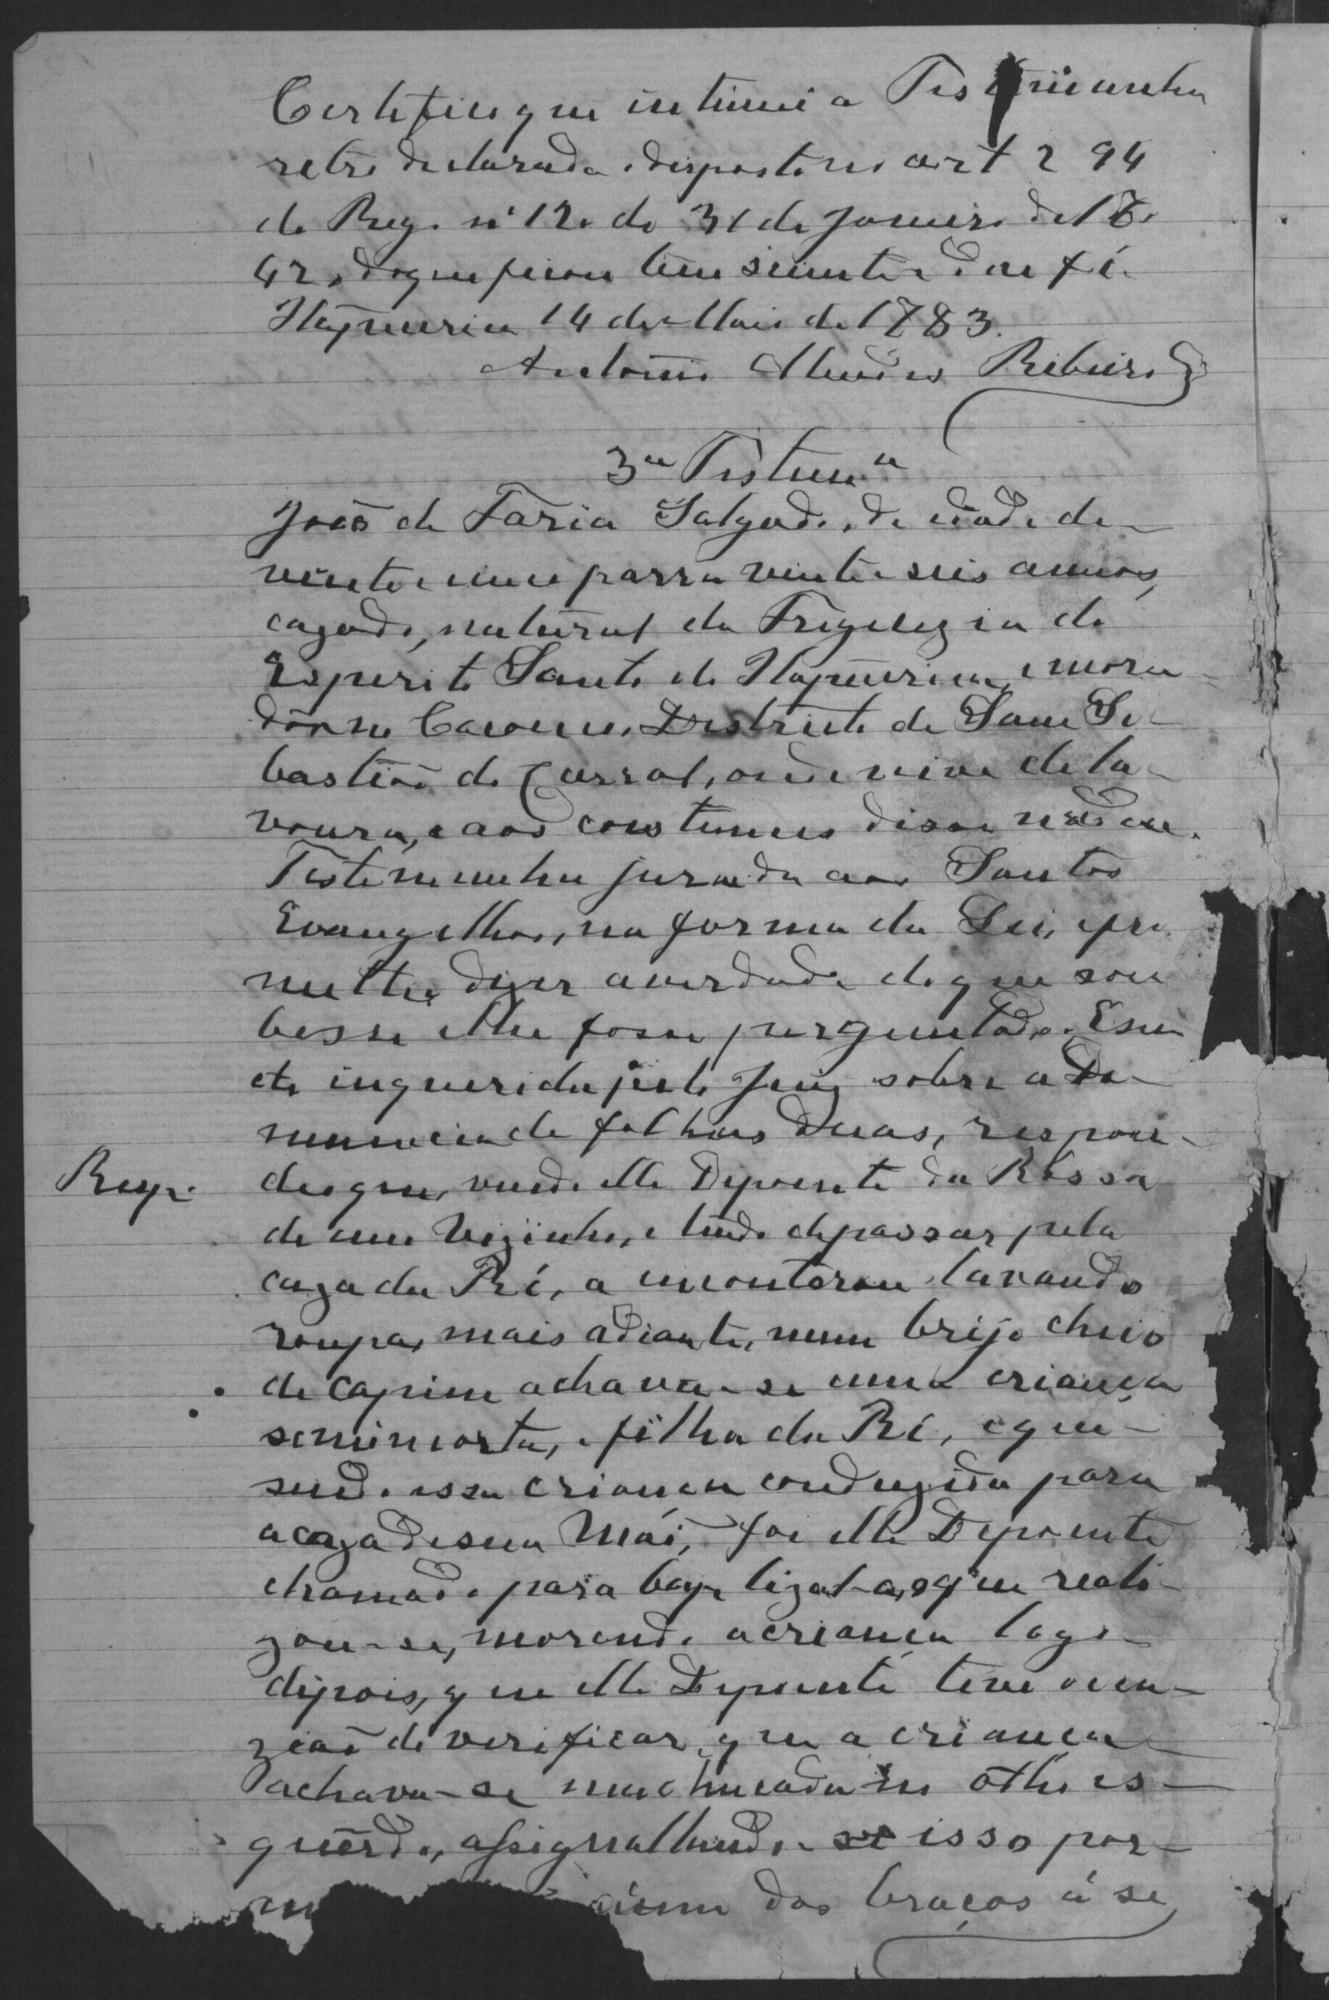 Certifico que intimei a Testimunha
retro declarada o disposto no art 294
do Reg. nº 120 de 31 de Janeiro de 18
42, do que ficou bem sciente e dou fé.
Itapemirim 14 de Maio de 1883.
Antonio Mendes Ribeiro
3ª Testemª
João de Faria Salgado, de idade de
vinte cinco parra vinte seis annos,
cazado, natural da Freguezia do
Esperito Santo do Itapemirim, e mora
dor no Distrito de Sam Se
bastião do Curral, onde vive de la
voura, e aos costumes disse nada
Testemunha jurada aos Santos
Evangelhos, na forma da Lei, e pro
metteu dizer a verdade do que sou
besse e lhe fosse perguntado. E sen
do inquerida pelo Juiz sobre a De
nuncia de folhas duas, respon
Resp.
deo que, vindo elle Depoente da Rossa
de um vezinho, e tendo de passar pela
caza da Ré, a encontrou lavando
roupa, mais adiante, num brejo cheio
de capim achava-se uma criança
semimorta, filha da Ré, e que
sendo essa criança conduzida para
a caza de sua Mãi, foi elle Depoente
chamado para baptizal-a, o que reali
zou-se, morendo a criança logo
depois, que elle Depoente teve occa
zião de verificar que a criança
achava-se machucada no olho es
querdo, assignalhando isso por
dos braços á se